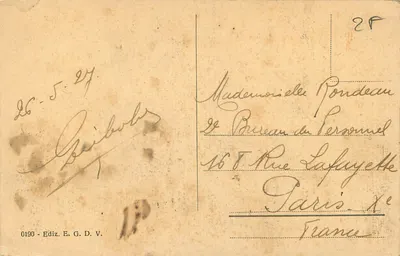 2F
26-5-27
Mademoiselle Rondeau
2e Bureau du Personnel
168 Rue Lafayette
Paris Xe
France
6190 - Ediz. E. G. D. V.